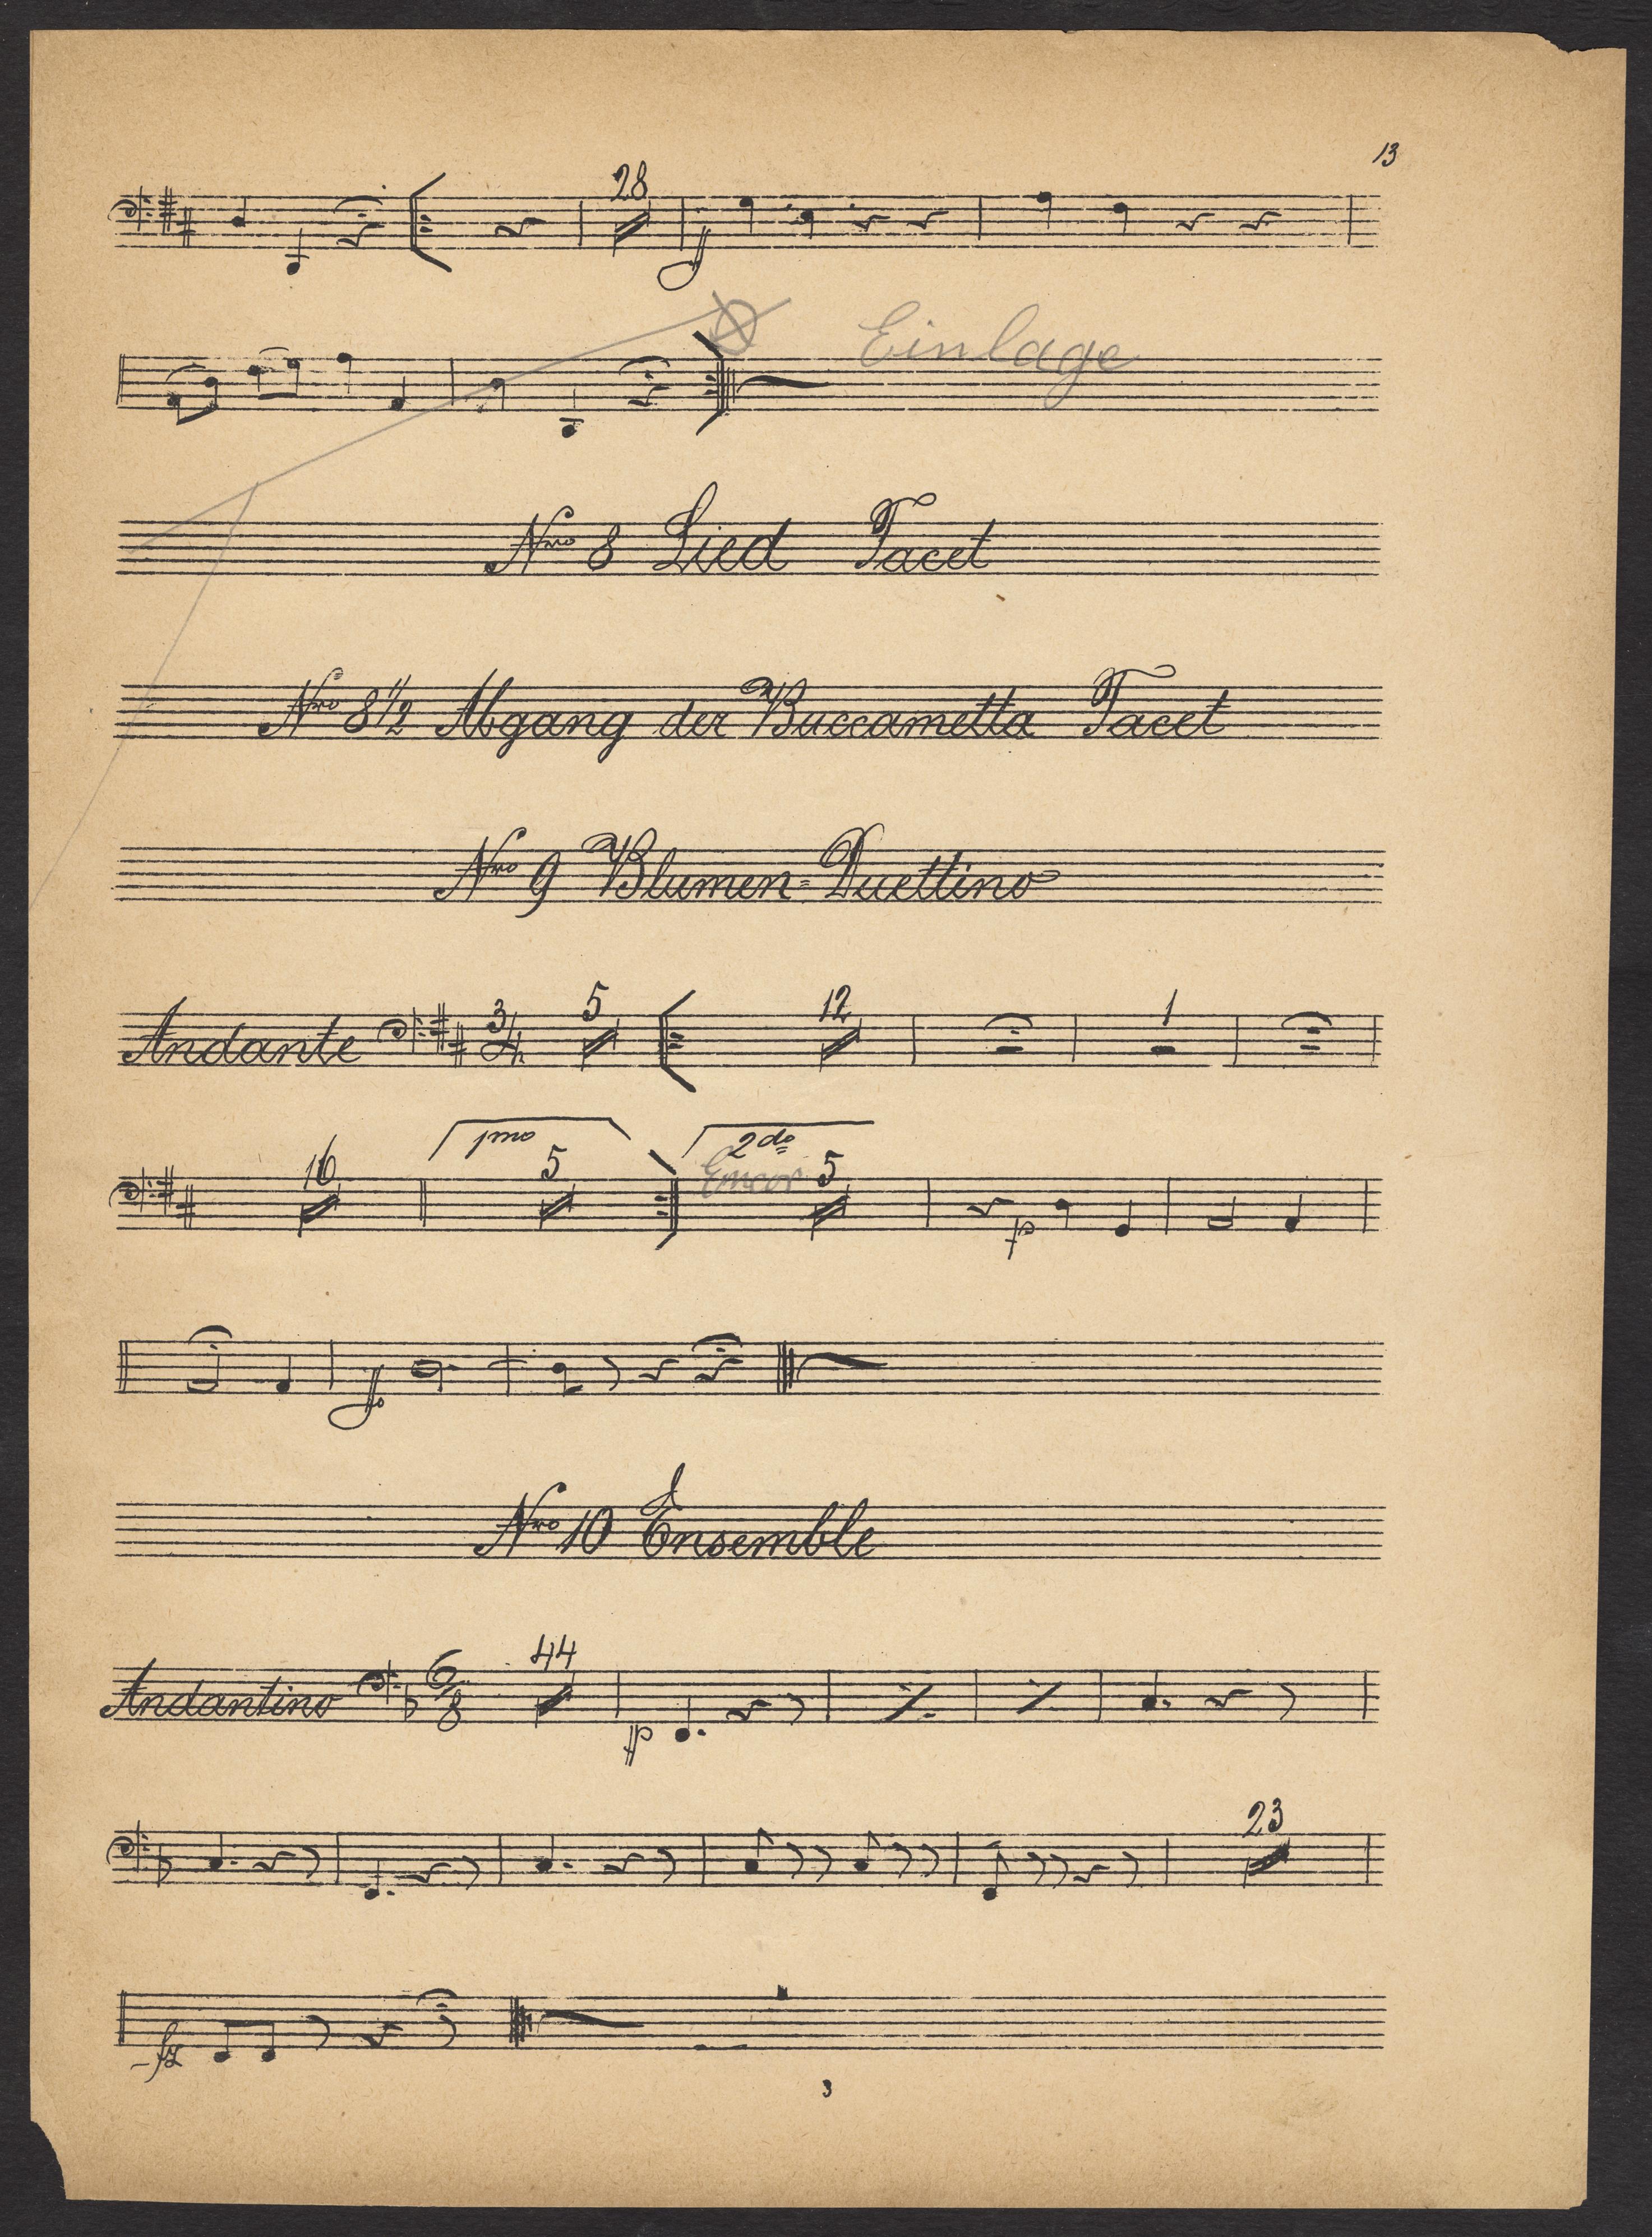 13
28
f
Einlage
Nro 8 Lied Tacet
Nro 8 1/2 Abgang der Buccametta Tacet
Nro 9 Blumen=Duettino
Andante 3/4 5 12 1
1mo 2do
16 5 Encor 5
p
fp
Nro 10 Ensemble
44
Andantino 6/8
p
23
fz
3